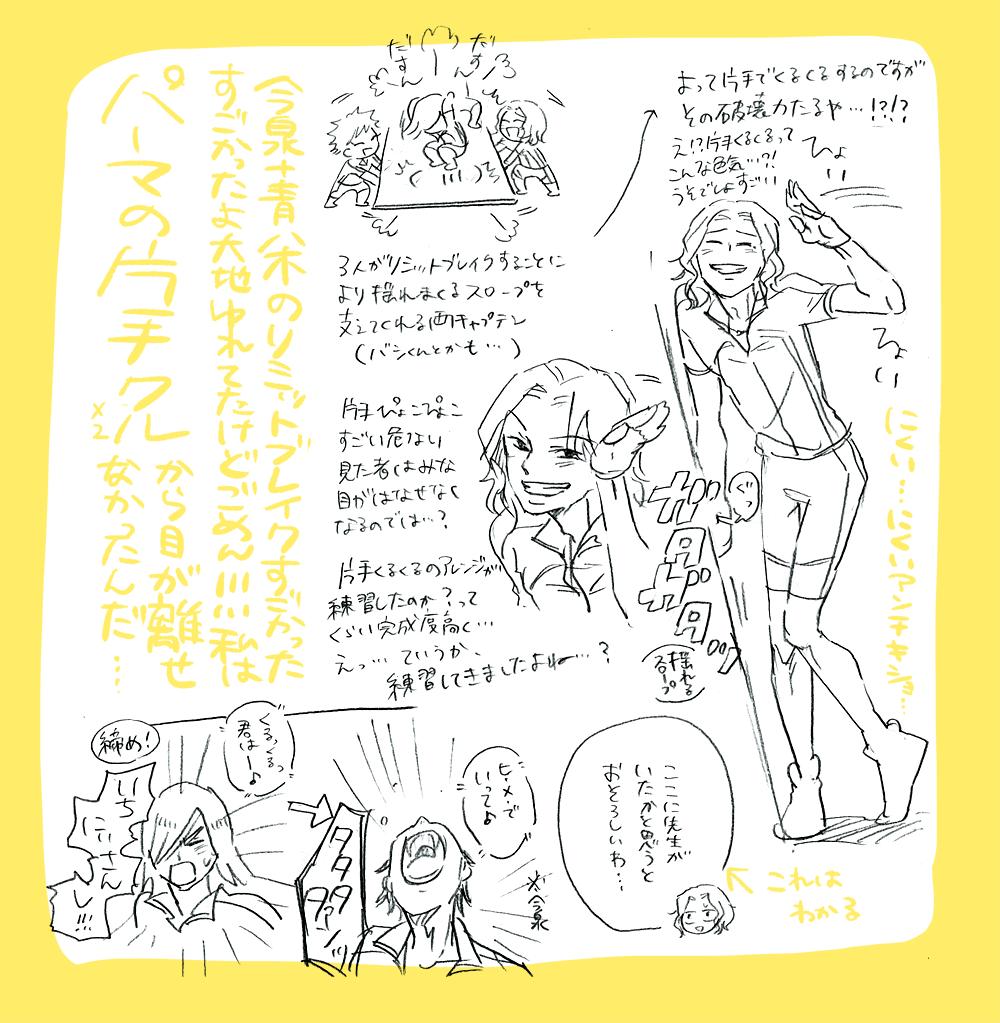 今泉+青八木のリミットブレイクすごかった
すごかったよ大地ゆれてたけどごめん!!!!私は
パーマの片手クル×2から目が離せ
なかったんだ…
だすん
だすん
3人がリミットブレイクすることに
より揺れまくるスロープを
支えてくれる両キャプテン
(バシくんとかも…)
よって片手でくるくるするのですが
その破壊力たるや…!?!?
え!?片手くるくるって
こんな色気…?!
うそでしょすごい
ひょい
ひょい
片手ぴょこぴょこ
すごい危ない
見た者はみな
目がはなせなく
なるのでは…?
片手くるくるのアレンジが
練習したのか?って
くらい完成度高く…
えっ…ていうか、
練習してきましたよね…?
ぐっ
ガタガタッ
揺れる
スロープ
にくい…にくいアンチキショ…
締め!
いち
にいさん
し!!!
くるっくるっ
君はー♪
タタタタァンッ
ヒ・メ・で
いってよ♪
※今泉
ここに先生が
いたかと思うと
おそろしいわ…
← これは
わかる